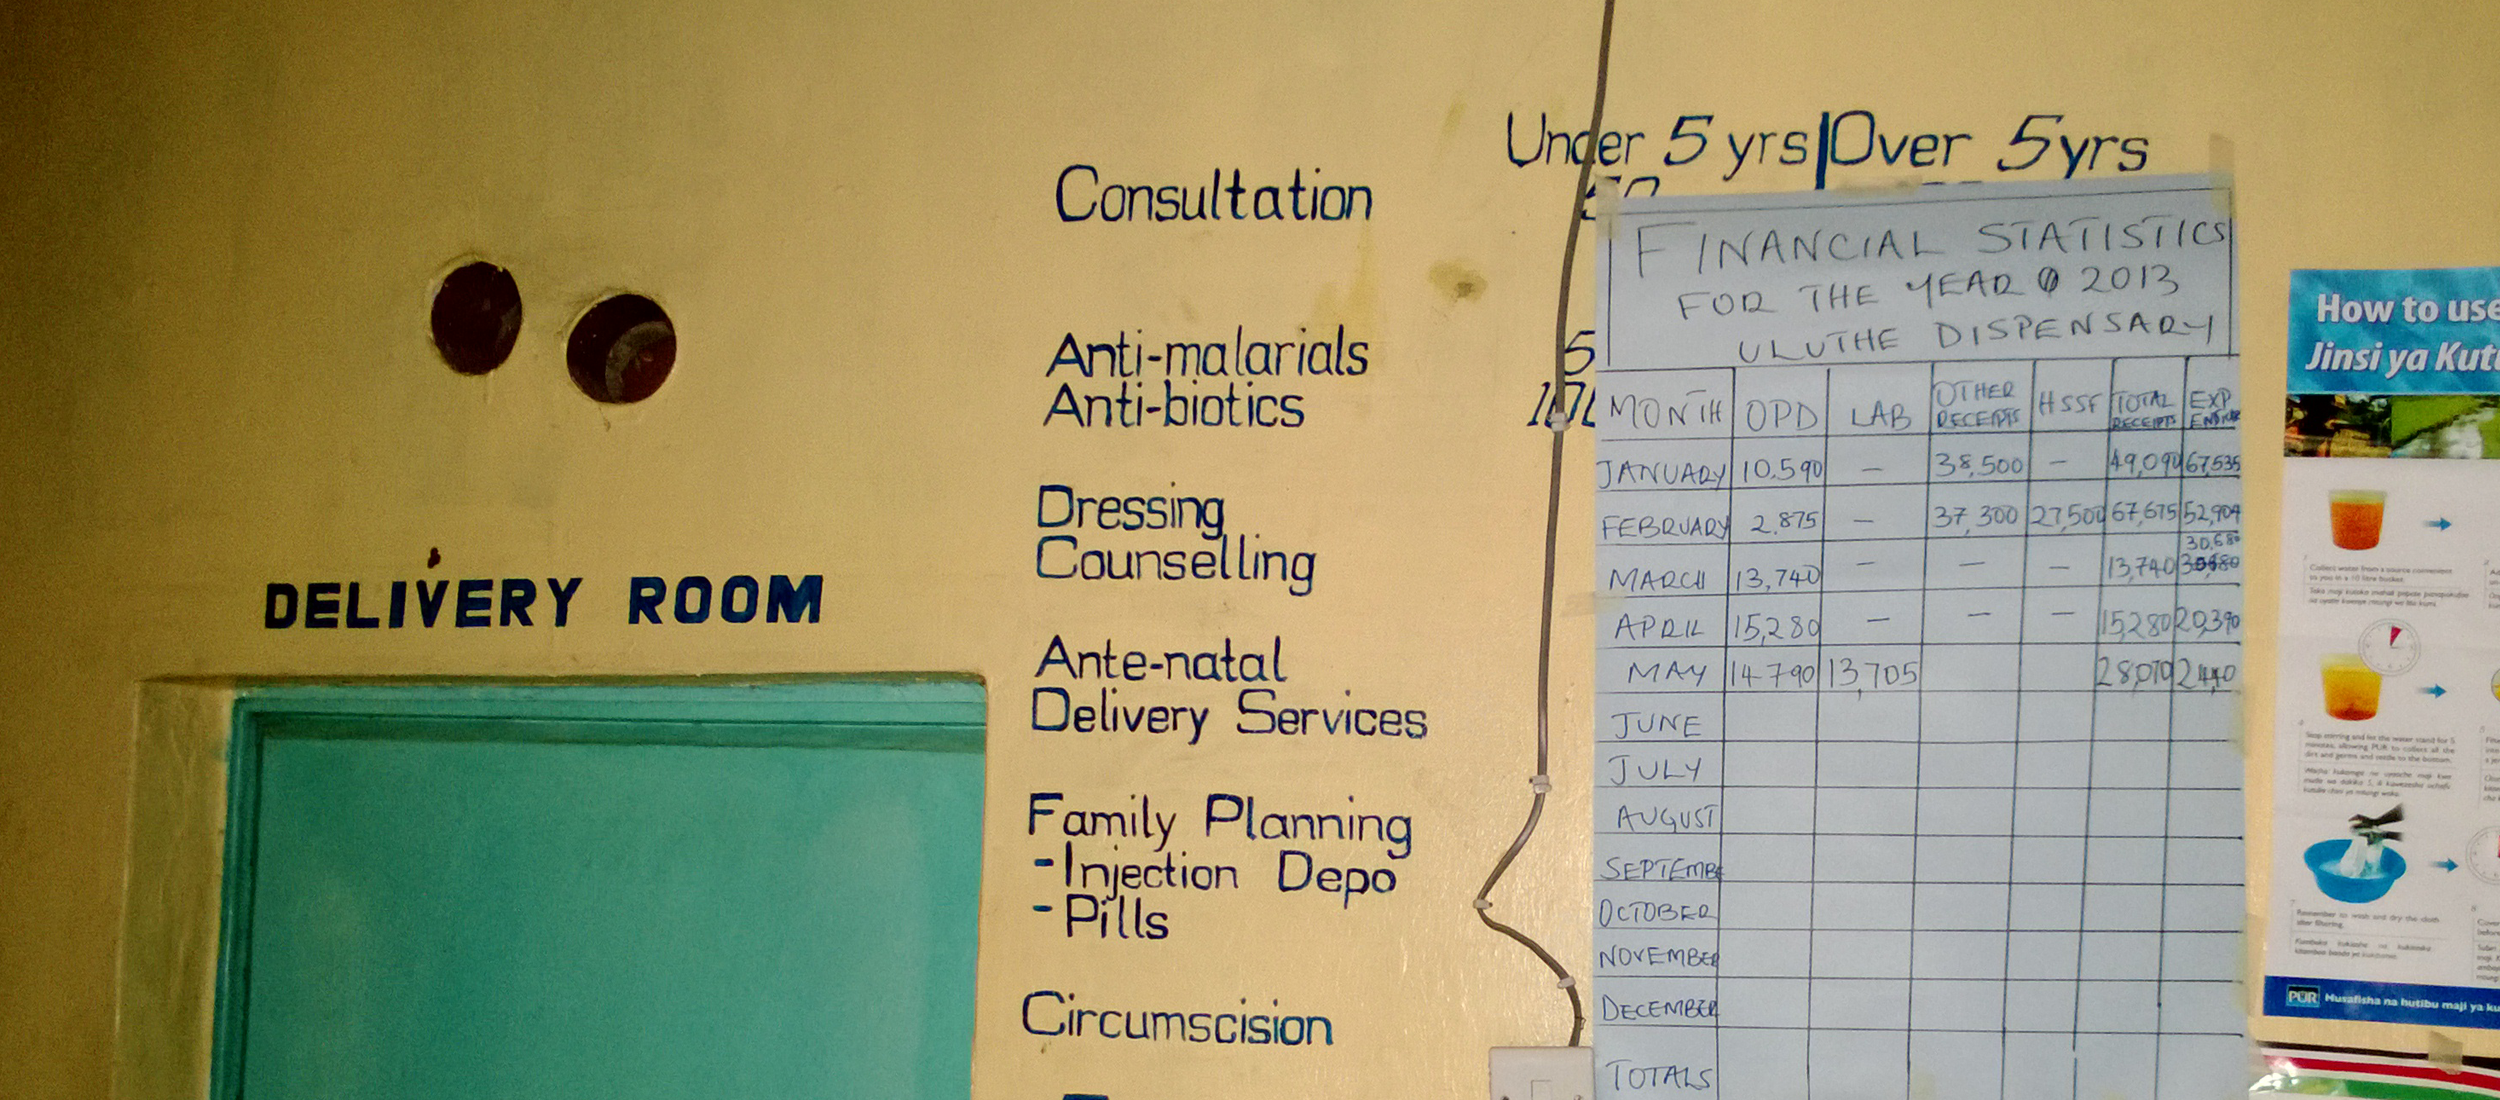 DELIVERY ROOM
Under 5 yrs|Over 5yrs
Consultation
Anti-malarials
Anti-biotics
Dressing
Counselling
Ante-natal
Delivery Services
Family Planning
-Injection Depo
-Pills
Circumscision
FINANCIAL STATISTICS
FOR THE YEAR 2013
ULUTHE DISPENSARY
MONTH OPD LAB OTHER RECEIPTS HSSF TOTAL RECEIPTS EXPENDITURE
JANUARY 10,590 – 38,500 – 49,090 67,535
FEBRUARY 2,875 – 37,300 27,500 67,675 52,904
MARCH 13,740 – – – 13,740 30,680
APRIL 15,280 – – – 15,280 20,390
MAY 14790 13,705 28,070
JUNE
JULY
AUGUST
SEPTEMBE
OCTOBER
NOVEMBER
DECEMBER
TOTALS
How to use
Jinsi ya Kut
Remember to wash and dry the cloth
after filtering.
PUR Husafisha na hutibu maji ya ku